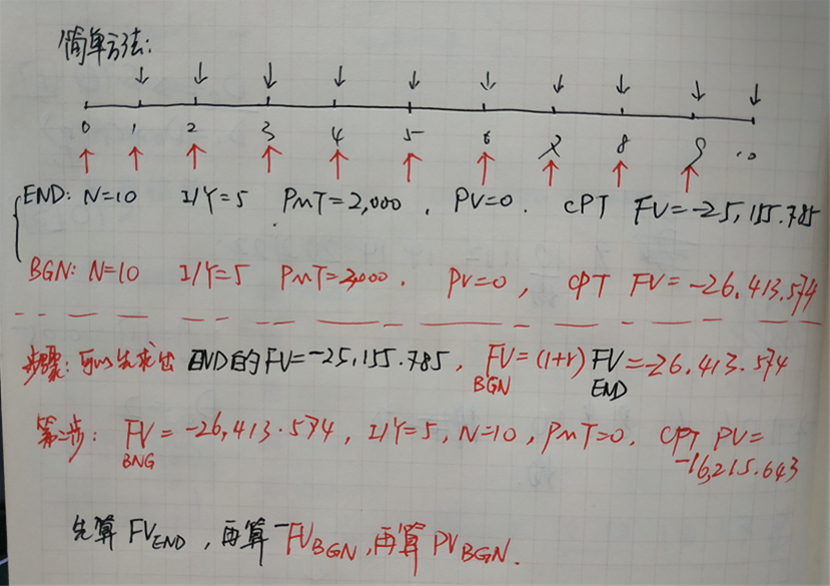 简单方法:
0 1 2 3 4 5 6 7 8 9 10
END: N=10 I/Y=5 PMT=2,000. PV=0. CPT FV=-25,155.785
BGN: N=10 I/Y=5 PMT=2,000. PV=0, CPT FV=-26.413.574
步骤: 可以先求出 END的FV=-25,155.785, FV=(1+r) FV=-26.413.574
BGN END
第二步: FV=-26,413.574, I/Y=5, N=10, PMT=0. CPT PV=
BNG -16,215.643
先算 FVEND, 再算 FVBGN, 再算 PVBGN.